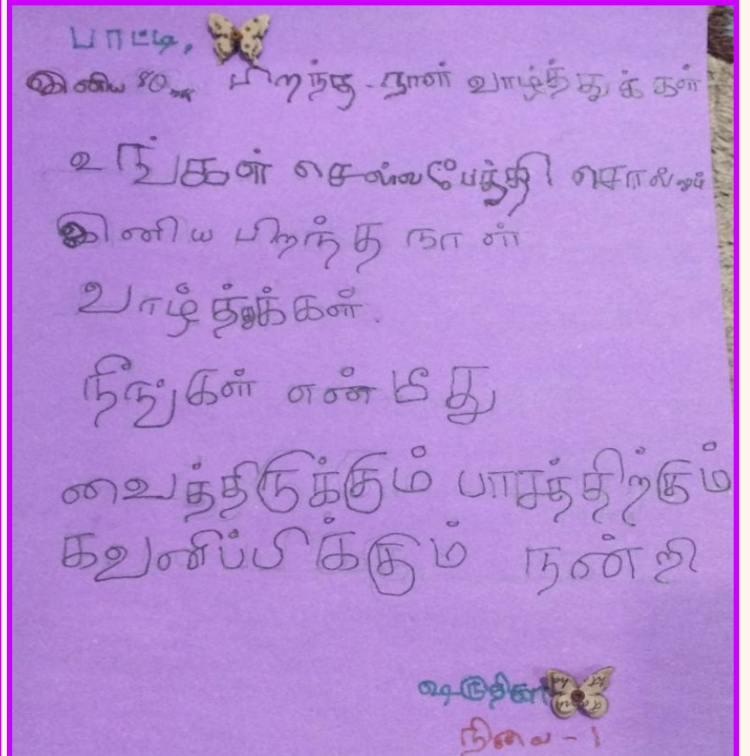 பாட்டி,
இனிய 80 பிறந்த-நாள் வாழ்த்துக்கள்
உங்கள் செல்லபேத்தி சொல்லும்
இனிய பிறந்த நாள்
வாழ்த்துக்கள்.
நீங்கள் என் மீது
வைத்திருக்கும் பாசத்திற்கும்
கவனிப்பிக்கும் நன்றி
நிலை - 1